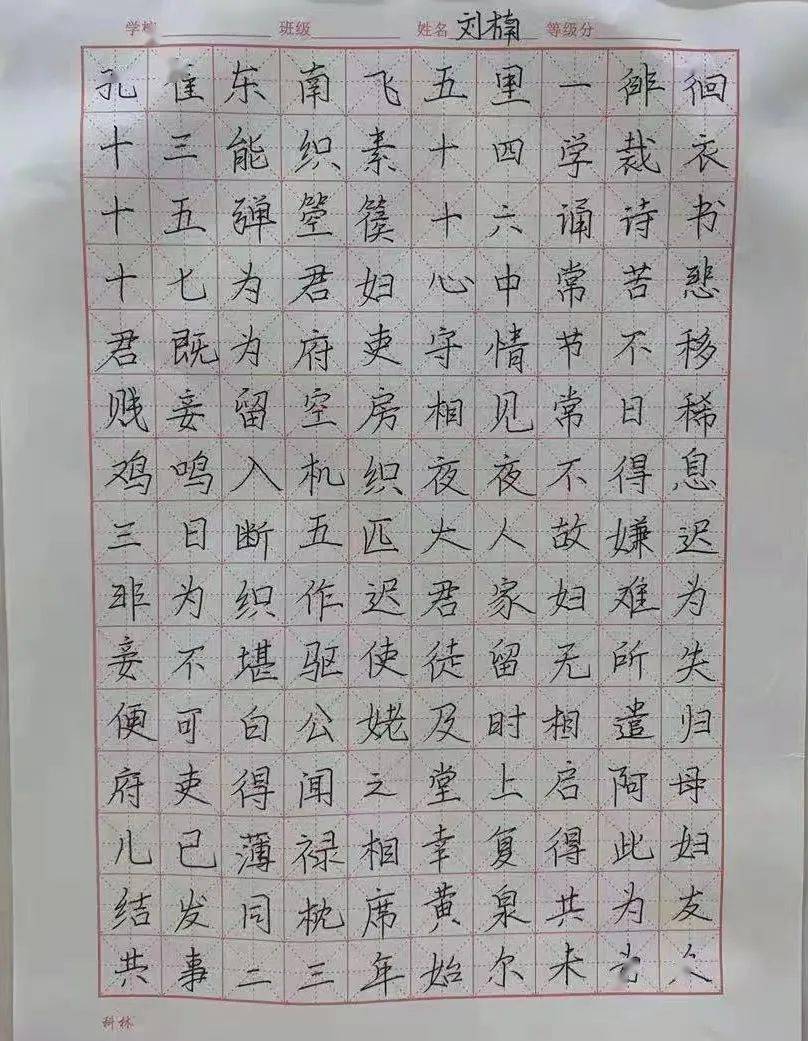 学校 班级 姓名 刘楠 等级分
孔雀东南飞五里一徘徊
十三能织素十四学裁衣
十五弹箜篌十六诵诗书
十七为君妇心中常苦悲
君既为府吏守情节不移
贱妾留空房相见常日稀
鸡鸣入机织夜夜不得息
三日断五匹大人故嫌迟
非为织作迟君家妇难为
妾不堪驱使徒留无所失
便可白公姥及时相遣归
府吏得闻之堂上启阿母
儿已薄禄相幸复得此妇
结发同枕席黄泉共为友
共事二三年始尔未为久
科林